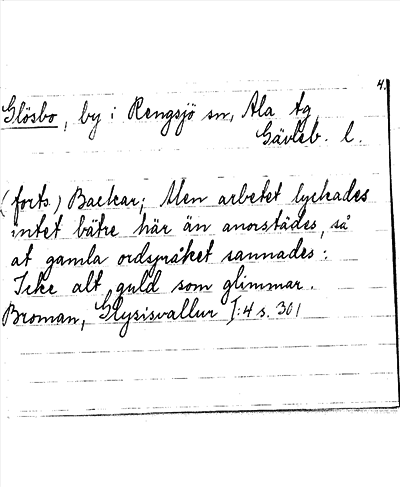 4.
Glösbo, by i Rengsjö sn, Ala tg
Gävleb. l.
(forts.) Backar; Men arbetet lyckades
intet bätre här än anorstädes, så
at gamla ordspråket sannades:
Icke alt guld som glimmar.
Broman, Glysisvallur I:4 s. 301